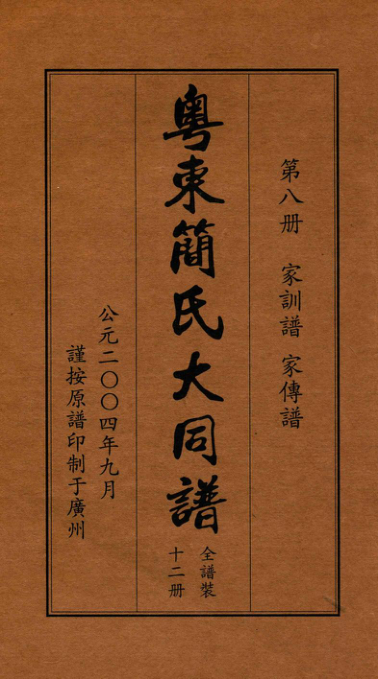 第八册 家訓譜 家傳譜
粤東簡氏大同譜
全譜裝
十二册
公元二〇〇四年九月
謹按原譜印制于廣州